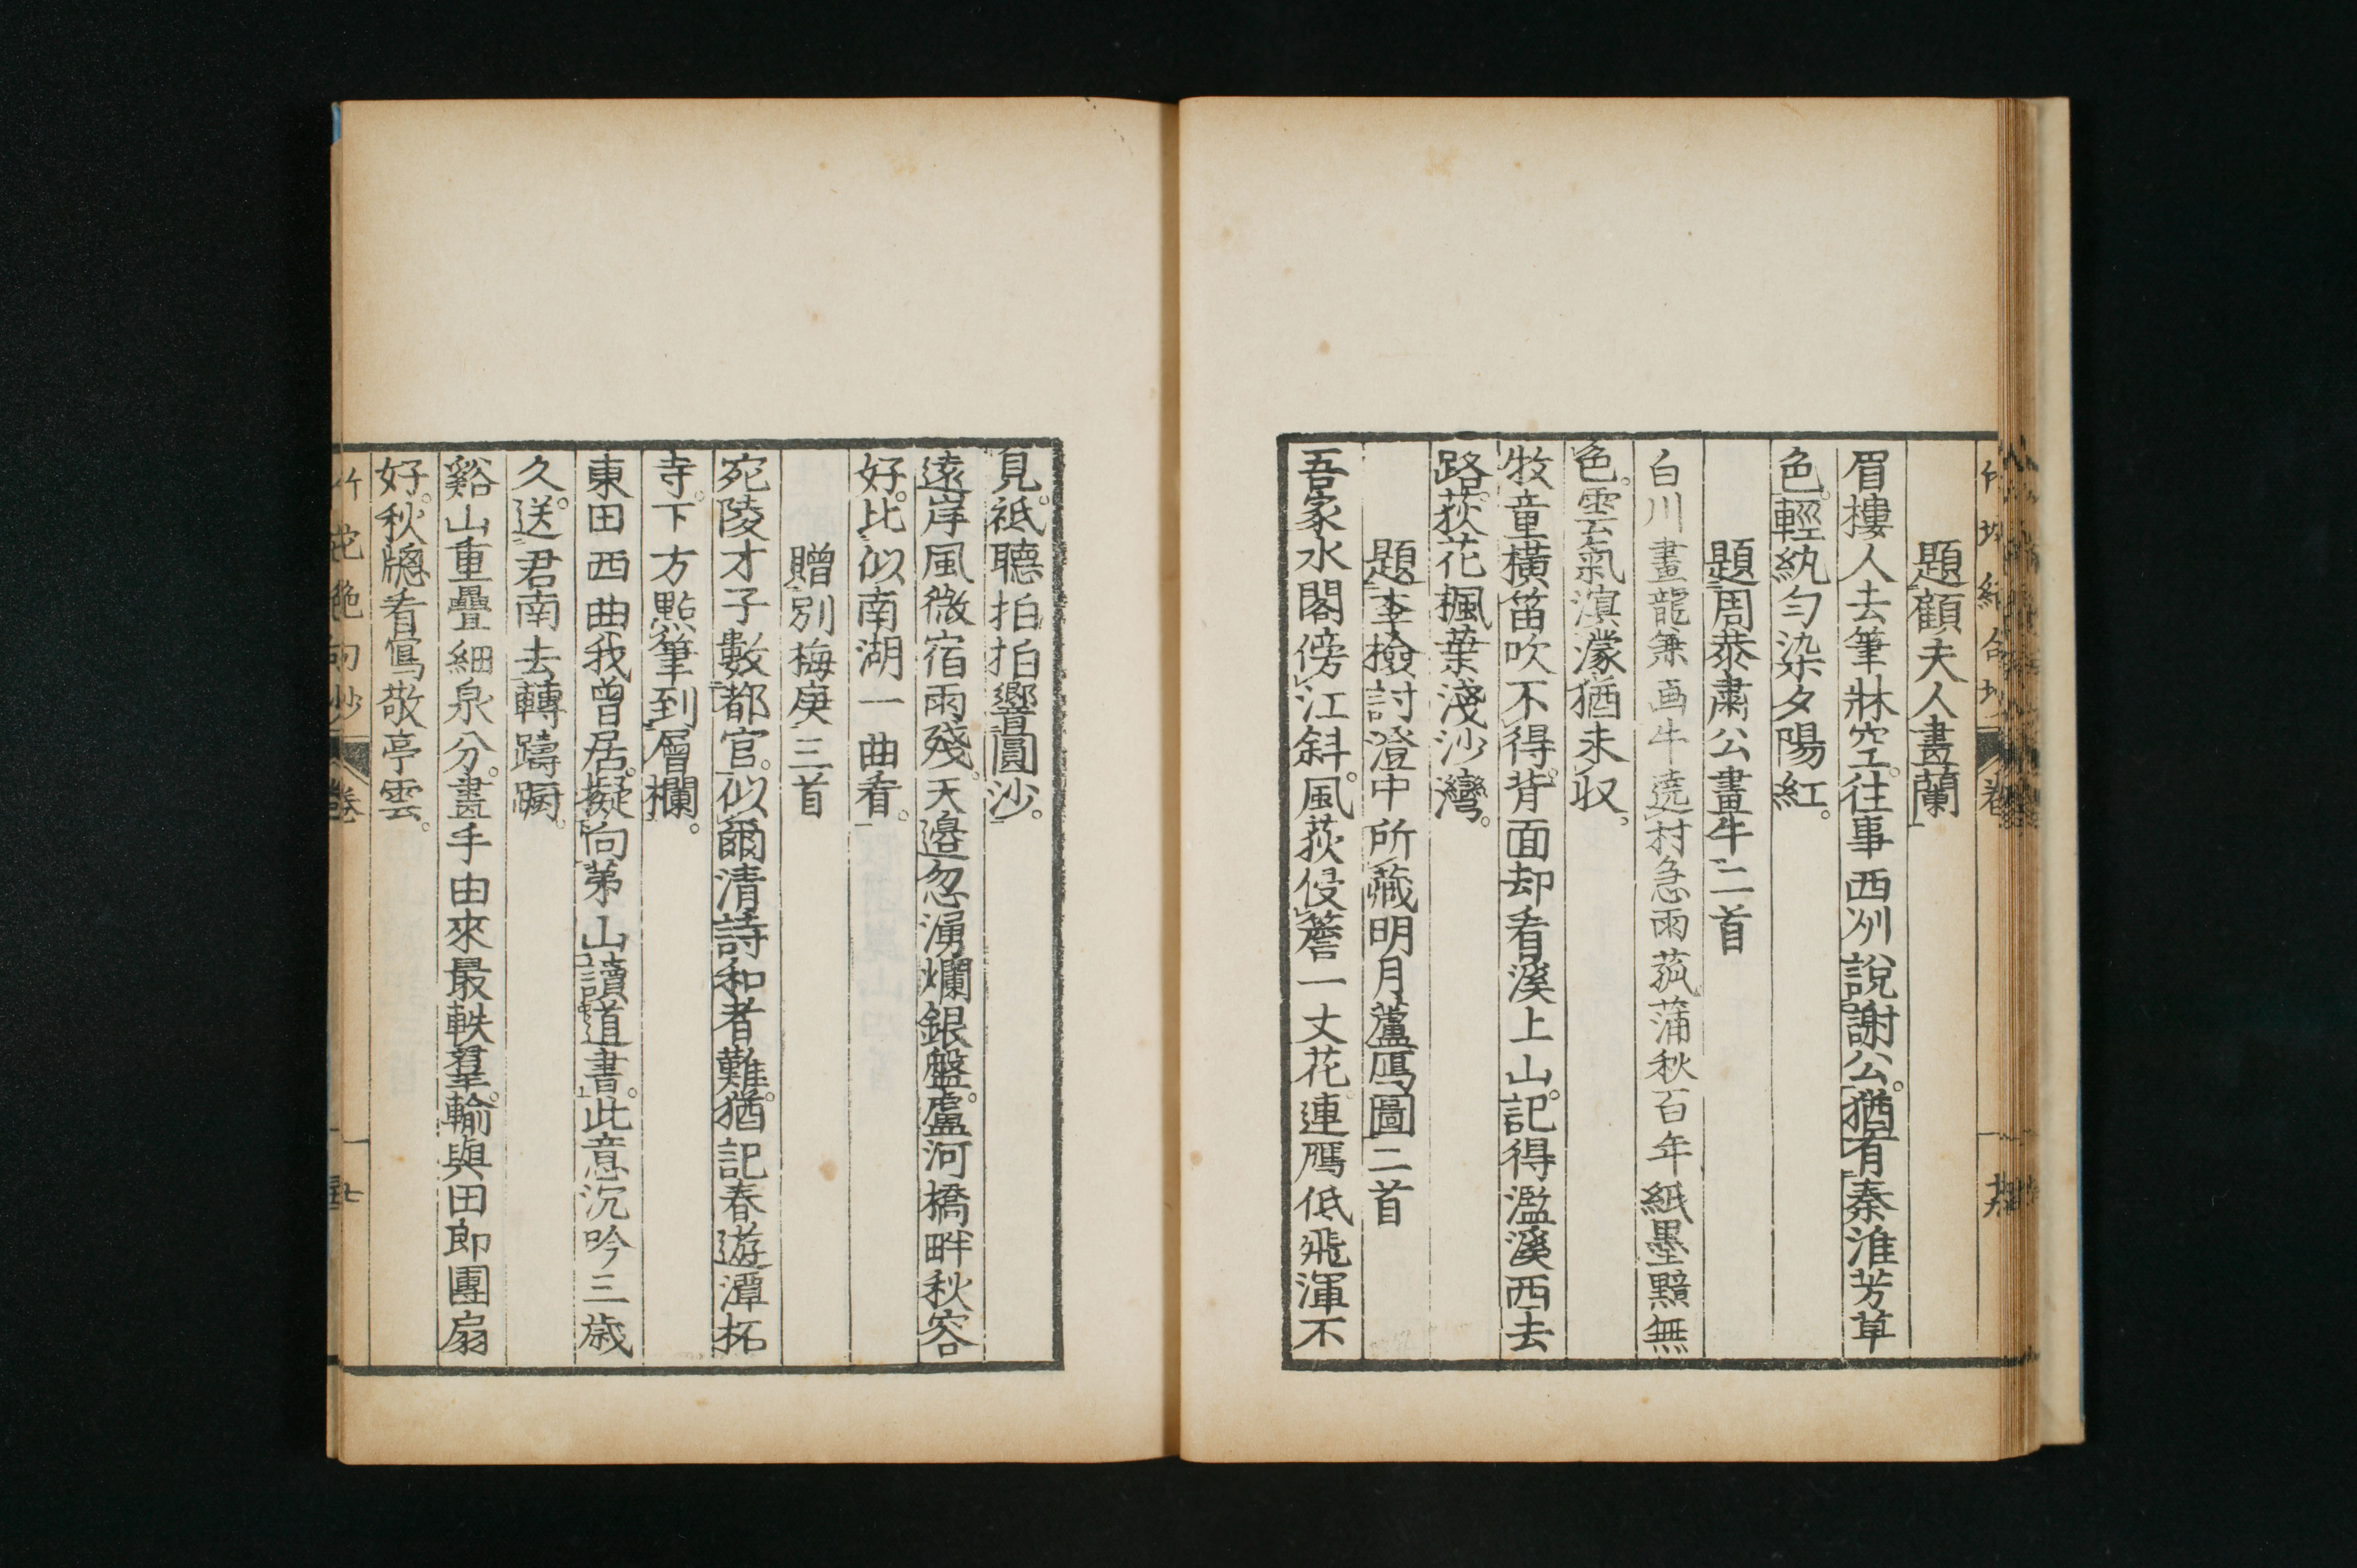 題顧夫人畫蘭
眉樓人去筆牀空。往事西州說謝公。猶有秦淮芳草
色。輕紈勻染夕陽紅。
題周恭肅公畫牛二首
白川畫龍兼画牛遶村急雨菰蒲秋百年紙墨黯無
色。雲氣溟濛猶未収。
牧童橫笛吹不得。背面却看溪上山。記得濫溪西去
路。荻花楓葉淺沙灣。
題李檢討澄中所藏明月蘆鴈圖二首
吾家水閣傍江斜。風荻侵簷一丈花。連鴈低飛渾不
見。祗聽拍拍響圓沙。
遠岸風微宿雨殘。天邉忽湧爛銀盤。盧河橋畔秋容
好。比似南湖一曲看。
贈別梅庚三首
宛陵才子數都官。似爾清詩和者難。猶記春遊潭柘
寺。下方點筆到層欄。
東田西曲我曾居。擬向茅山讀道書。此意沉吟三歲
久。送君南去轉躊躕。
谿山重疊細泉分。畫手由來最軼羣。輸與田郎團扇
好。秋牕看寫敬亭雲。
竹垞絶句抄 卷